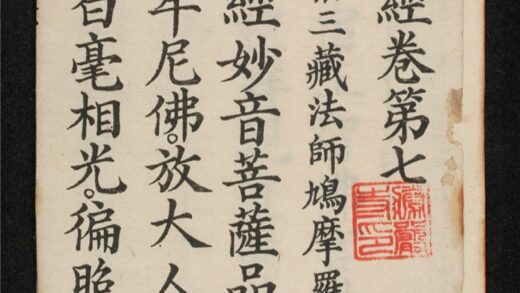 經卷第七
三藏法師鳩摩羅
經妙音菩薩品
牟尼佛。放大人
白毫相光。徧照